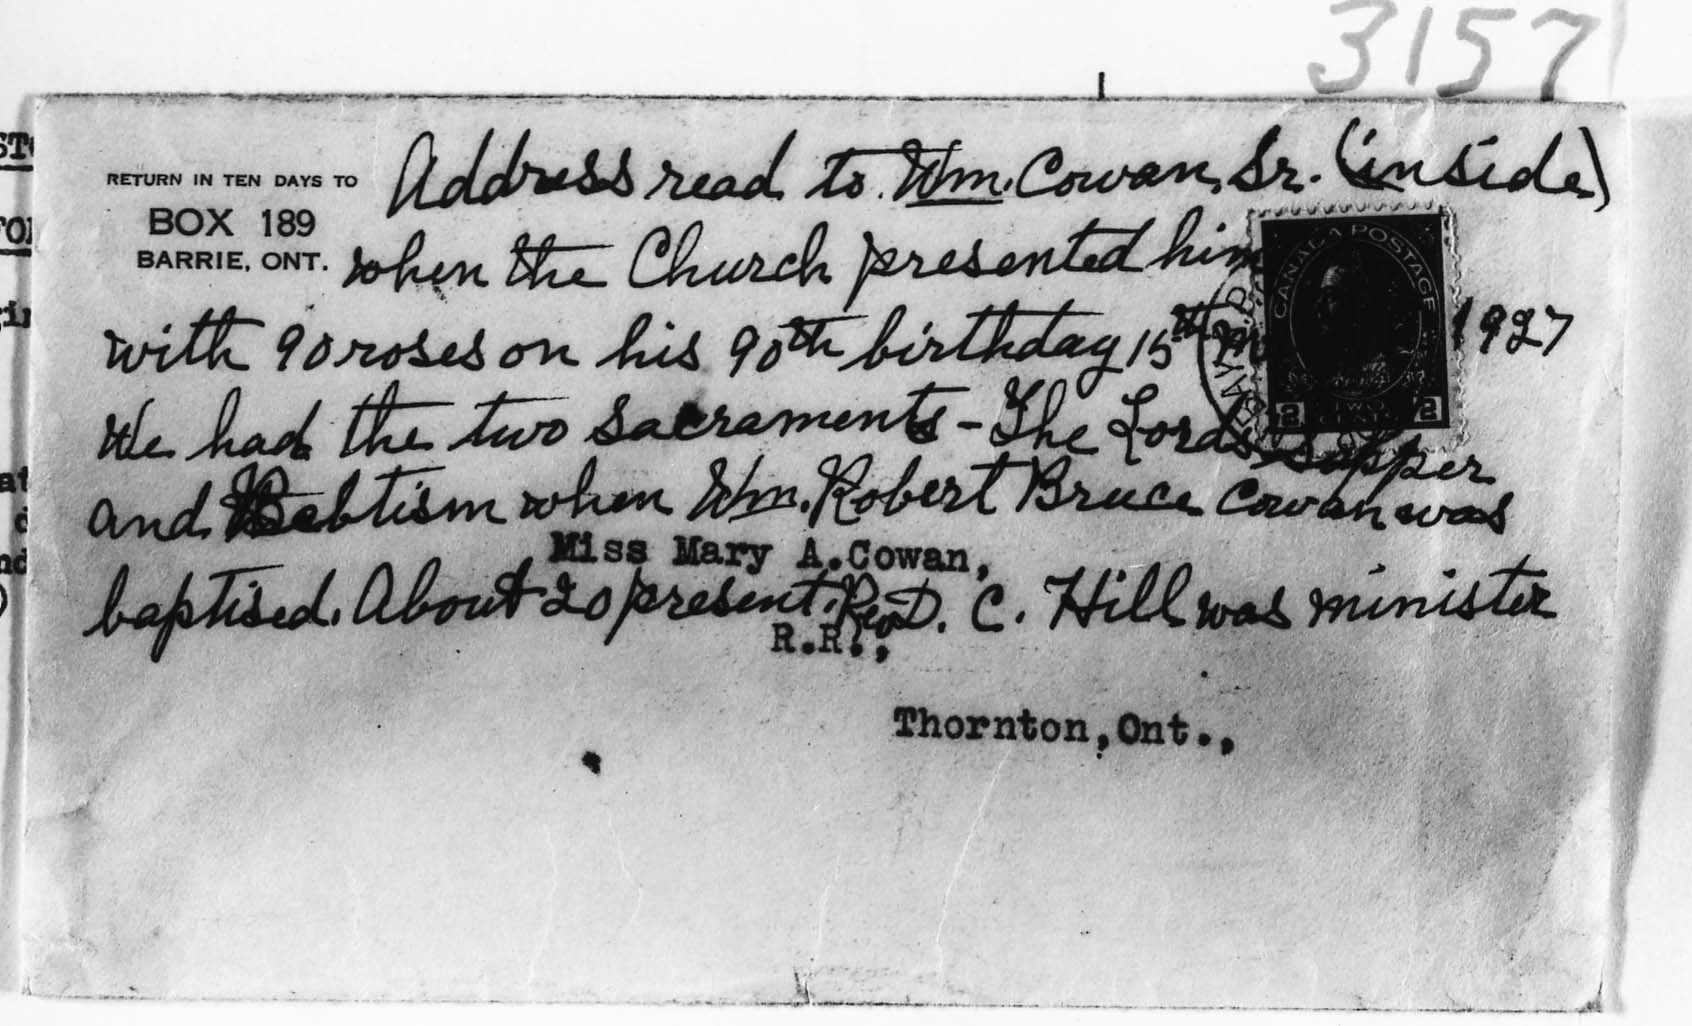 3157
RETURN IN TEN DAYS TO
BOX 189
BARRIE, ONT.
Address read to Wm. Cowan, Sr. (inside)
when the Church presented him
with 90 roses on his 90th birthday 15th 1927
We had the two Sacraments - The Lords Supper
and Babtism when Wm. Robert Bruce Cowan was
Miss Mary A. Cowan,
baptised. About 20 present. Rev D. C. Hill was minister
R.R.,
Thornton, Ont.,
CANADA POSTAGE
2 TWO CENTS 2